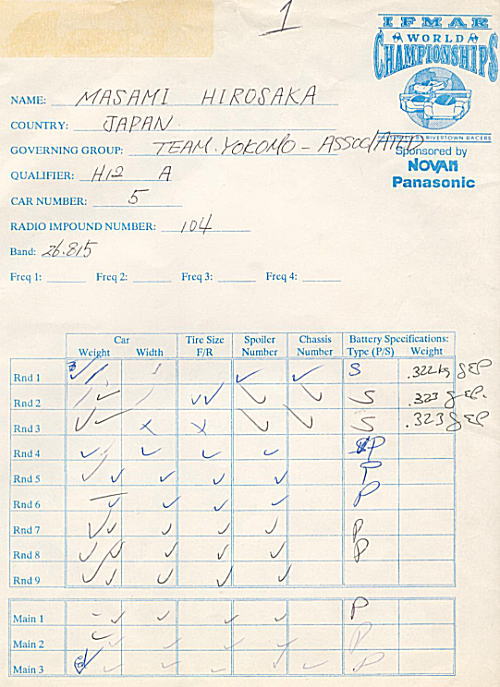 1
IFMAR
WORLD
CHAMPIONSHIPS
NAME: MASAMI HIROSAKA
COUNTRY: JAPAN
GOVERNING GROUP: TEAM.YOKOMO - ASSOCIATED
RIVERTOWN RACERS
Sponsored by
NOVAK
Panasonic
QUALIFIER: H12 A
CAR NUMBER: 5
RADIO IMPOUND NUMBER: 104
Band: 26.815
Freq 1: Freq 2: Freq 3: Freq 4:
Car Tire Size Spoiler Chassis Battery Specifications:
Weight Width F/R Number Number Type (P/S) Weight
Rnd 1 ✓ ✓ ✓ S .322kg
Rnd 2 ✓ ✓✓ ✓ ✓ S .323
Rnd 3 ✓✓ X X ✓ ✓ S .323
Rnd 4 ✓ ✓ ✓ ✓ P
Rnd 5 ✓ ✓ ✓ ✓ P
Rnd 6 ✓ ✓ ✓ ✓ P
Rnd 7 ✓✓ ✓ ✓ ✓ P
Rnd 8 ✓✓ ✓ ✓ ✓ P
Rnd 9 ✓✓ ✓ ✓ ✓
Main 1 - ✓ ✓ ✓ ✓ P
Main 2 ✓ ✓ ✓ ✓ P
Main 3 ✓ ✓ ✓ ✓ ✓ P